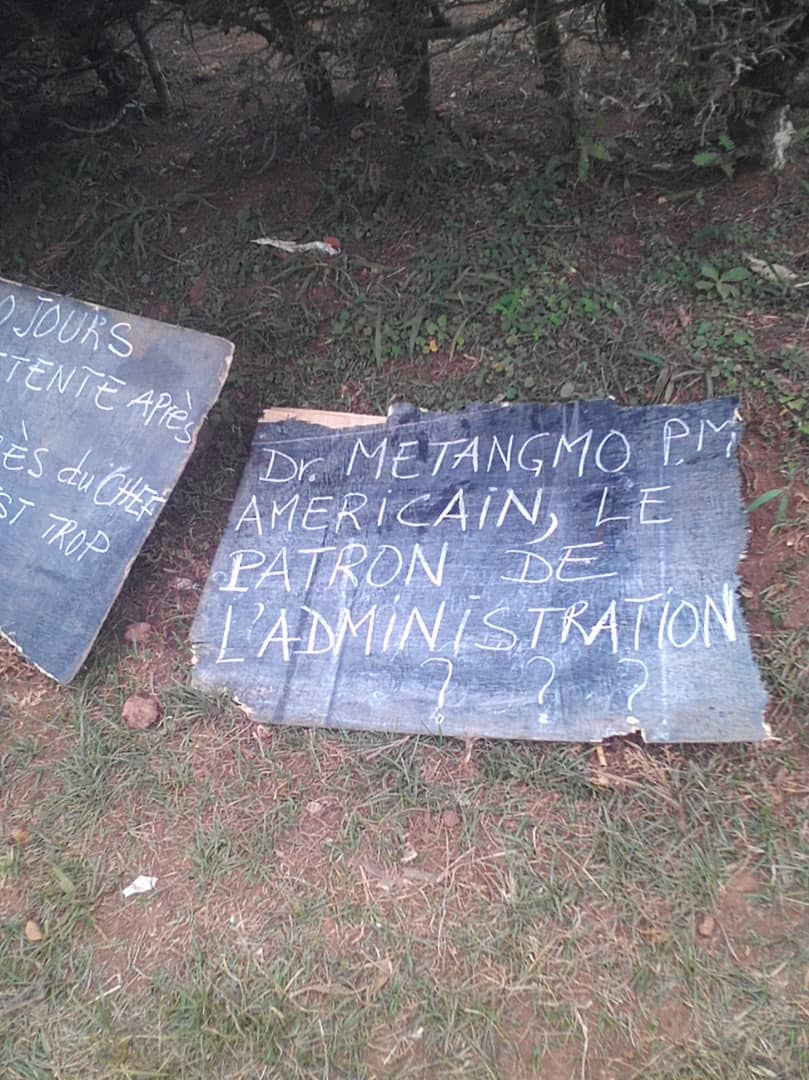 JOURS
TTENTE APRès
ÈS du CHEF
ST TROP
Dr. METANGMO P.M
AMERICAIN, LE
PATRON DE
L'ADMINISTRATION
? ? ?